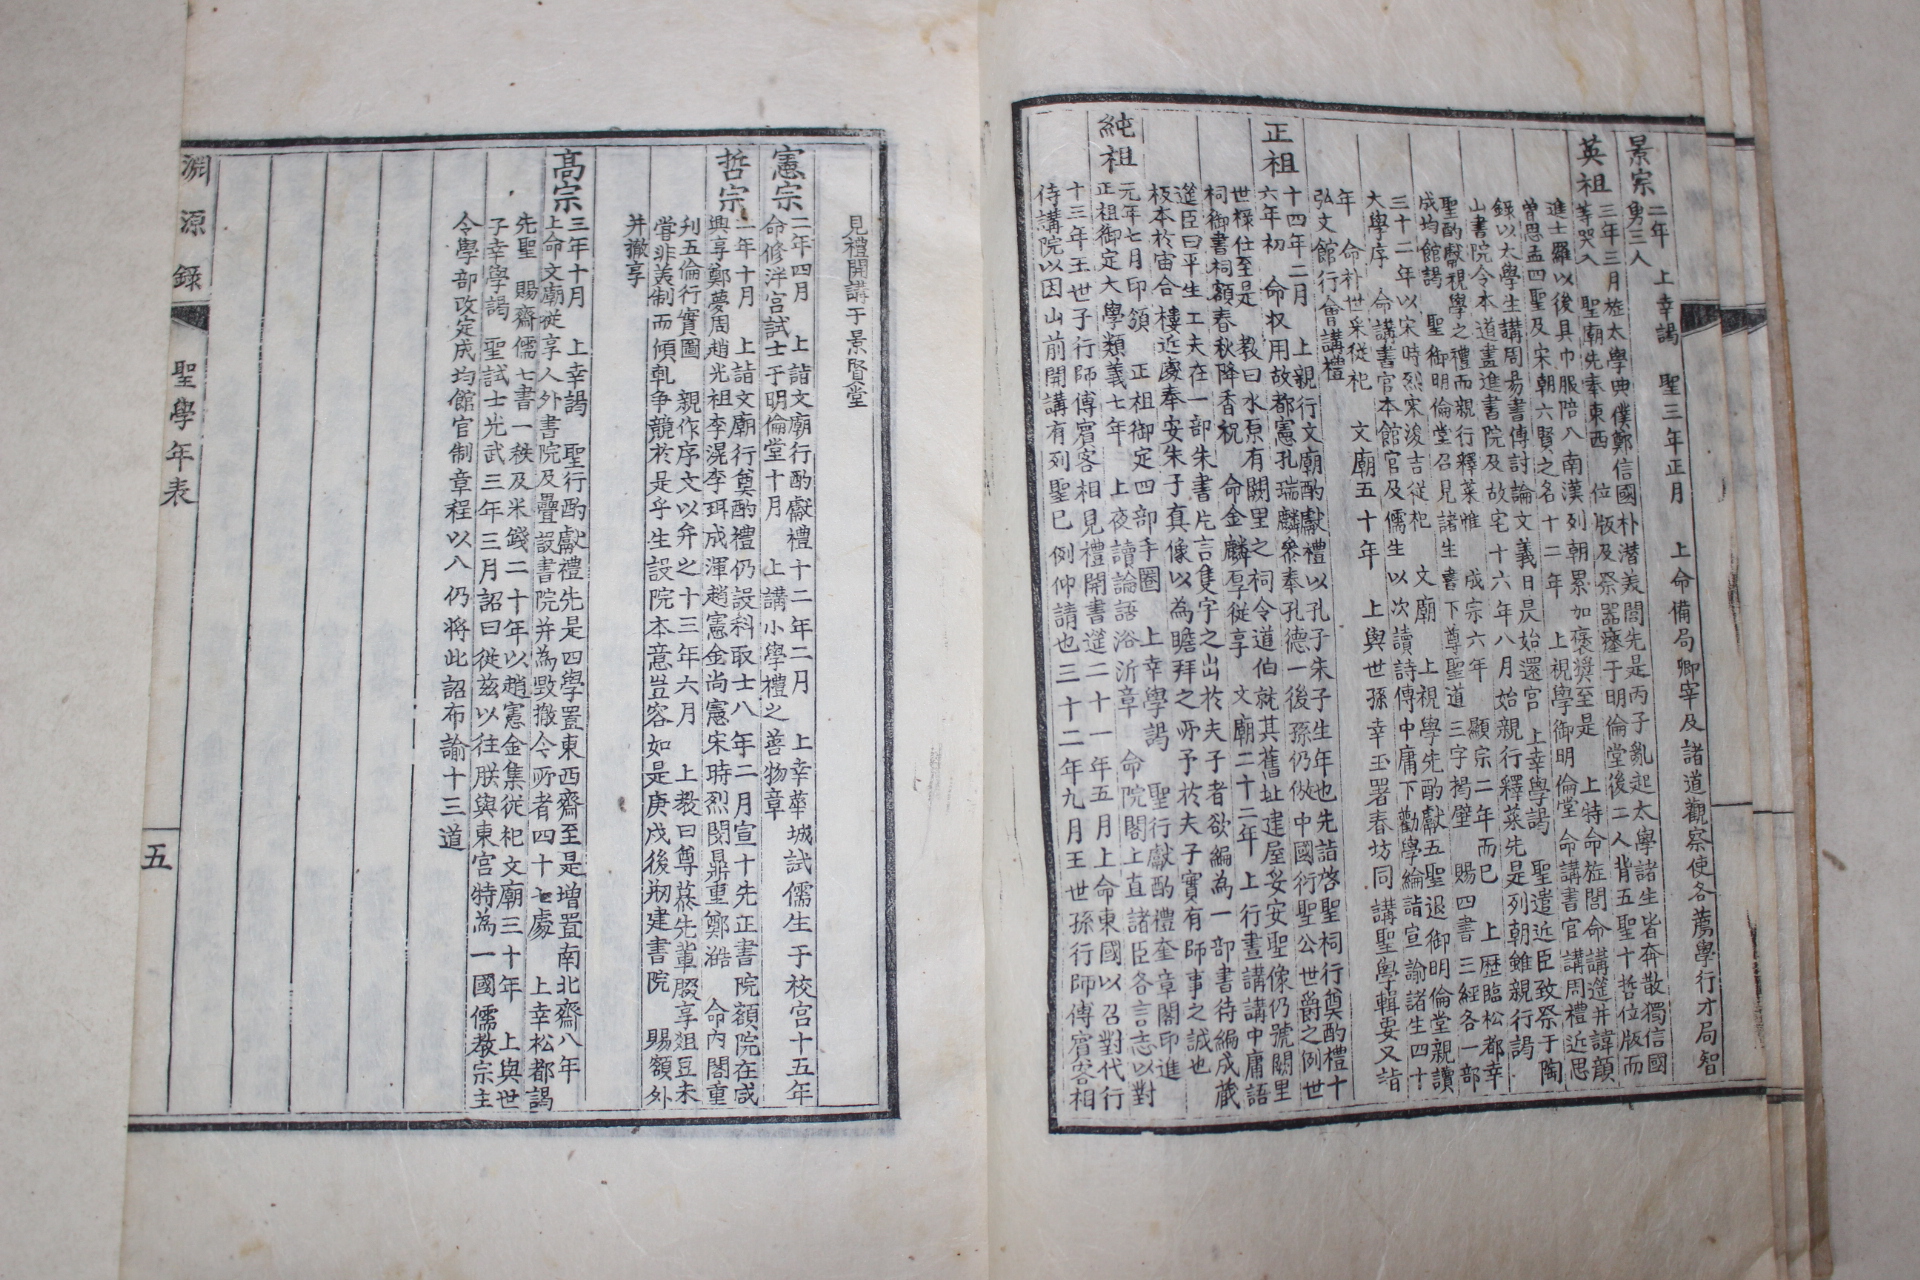 景宗 二年 上幸謁 聖三年正月 上命備局卿宰及諸道觀察使各薦學行才局智
勇三人
英祖 三年三月旌太學典僕鄭信國朴潛美閭先是丙子亂起太學諸生皆奔散獨信國
等哭入 聖廟先奉東西 位版及祭器瘞于明倫堂後二人背五聖十哲位版而
進士羅以後具巾服陪入南漢列朝累加褒奬至是 上特命旌閭命講筵并諱顔
曾思孟四聖及宋朝六賢之名十二年 上視學御明倫堂命講書官講周禮近思
錄以太學生講周易書傳討論文義日昃始還宮 上幸學謁 聖遣近臣致祭于陶
山書院令本道盡進書院及故宅十六年八月始親行釋菜先是列朝雖親行謁
聖酌獻視學之禮而親行釋菜惟 成宗六年 顯宗二年而已 上歷臨松都幸
成均館謁 聖御明倫堂召見諸生書下尊聖道三字揭壁 賜四書三經各一部
三十二年以宋時烈宋浚吉從祀 文廟 上視學先酌獻五聖退御明倫堂親讀
大學序 命講書官本館官及儒生以次讀詩傳中庸下勸學綸音宣諭諸生四十
年 命朴世采從祀 文廟五十年 上與世孫幸玉署春坊同講聖學輯要又詣
弘文館行會講禮
正祖 十四年二月 上親行文廟酌獻禮以孔子朱子生年也先詣啓聖祠行奠酌禮十
六年初 命收用故都憲孔瑞麟叅奉孔德一後孫仍倣中國衍聖公世爵之例世
世祿仕至是 敎曰水原有闕里之祠令道伯就其舊址建屋妥安聖像仍號闕里
祠御書祠額春秋降香祝 命金麟厚從享 文廟二十二年上行晝講講中庸語
筵臣曰平生工夫在一部朱書片言隻字之出於夫子者欲編為一部書待編成藏
板本於宙合樓近處奉安朱子真像以為瞻拜之所予於夫子實有師事之誠也
純祖 元年七月印頒 正祖御定四部手圈 上幸學謁 聖行獻酌禮奎章閣印進
正祖御定大學類義七年 上夜讀論語浴沂章 命院閣上直諸臣各言志以對
十三年王世子行師傅賓客相見禮開書筵二十一年五月上命東國以召對代行
侍講院以因山前開講有列聖已例仰請也三十二年九月王世孫行師傅賓客相
見禮開講于景賢堂
憲宗 二年四月 上詣文廟行酌獻禮十二年二月 上幸華城試儒生于校宮十五年
命修泮宮試士于明倫堂十月 上講小學禮之善物章
哲宗 二年十月 上詣文廟行奠酌禮仍設科取士八年二月宣十先正書院額院在咸
興享鄭夢周趙光祖李滉李珥成渾趙憲金尚憲宋時烈閔鼎重鄭澔 命內閣重
刋五倫行實圖 親作序文以弁之十三年六月 上敎曰尊慕先軰腏享俎豆未
嘗非美制而傾軋爭競於是乎生設院本意豈容如是庚戌後刱建書院 賜額外
并撤享
高宗 三年十月 上幸謁 聖行酌獻禮先是四學置東西齋至是增置南北齋八年
上命文廟從享人外書院及疊設書院并為毀撤今所者四十七處 上幸松都謁
先聖 賜齋儒七書一秩及米錢二十年以趙憲金集從祀文廟三十年 上與世
子幸學謁 聖試士光武三年三月詔曰從兹以往朕與東宮特為一國儒敎宗主
令學部改定成均館官制章程以入仍將此詔布諭十三道
淵源錄 聖學年表 五